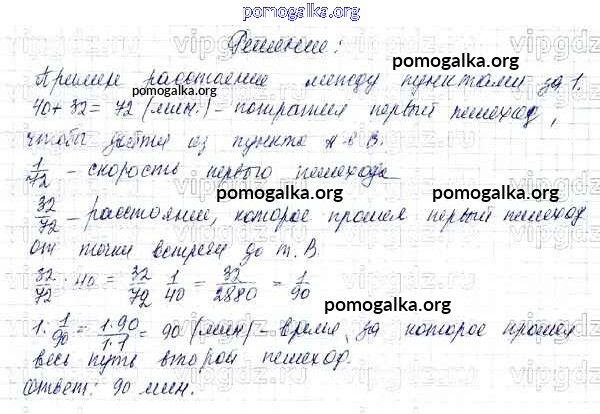 pomogalka.org
Решение:
pomogalka.org
Примем расстояние между пунктами за 1.
40 + 32 = 72 (мин.) - потратил первый пешеход,
чтобы дойти из пункта А в В.
1/72 - скорость первого пешехода
pomogalka.org
pomogalka.org
32/72 - расстояние, которое прошел первый пешеход
от точки встречи до т. В.
32/72 : 40 = 32/72 · 1/40 = 32/2880 = 1/90
pomogalka.org
1 : 1/90 = 1·90/1·1 = 90 (мин) - время, за которое прошел
весь путь второй пешеход.
pomogalka.org
Ответ: 90 мин.